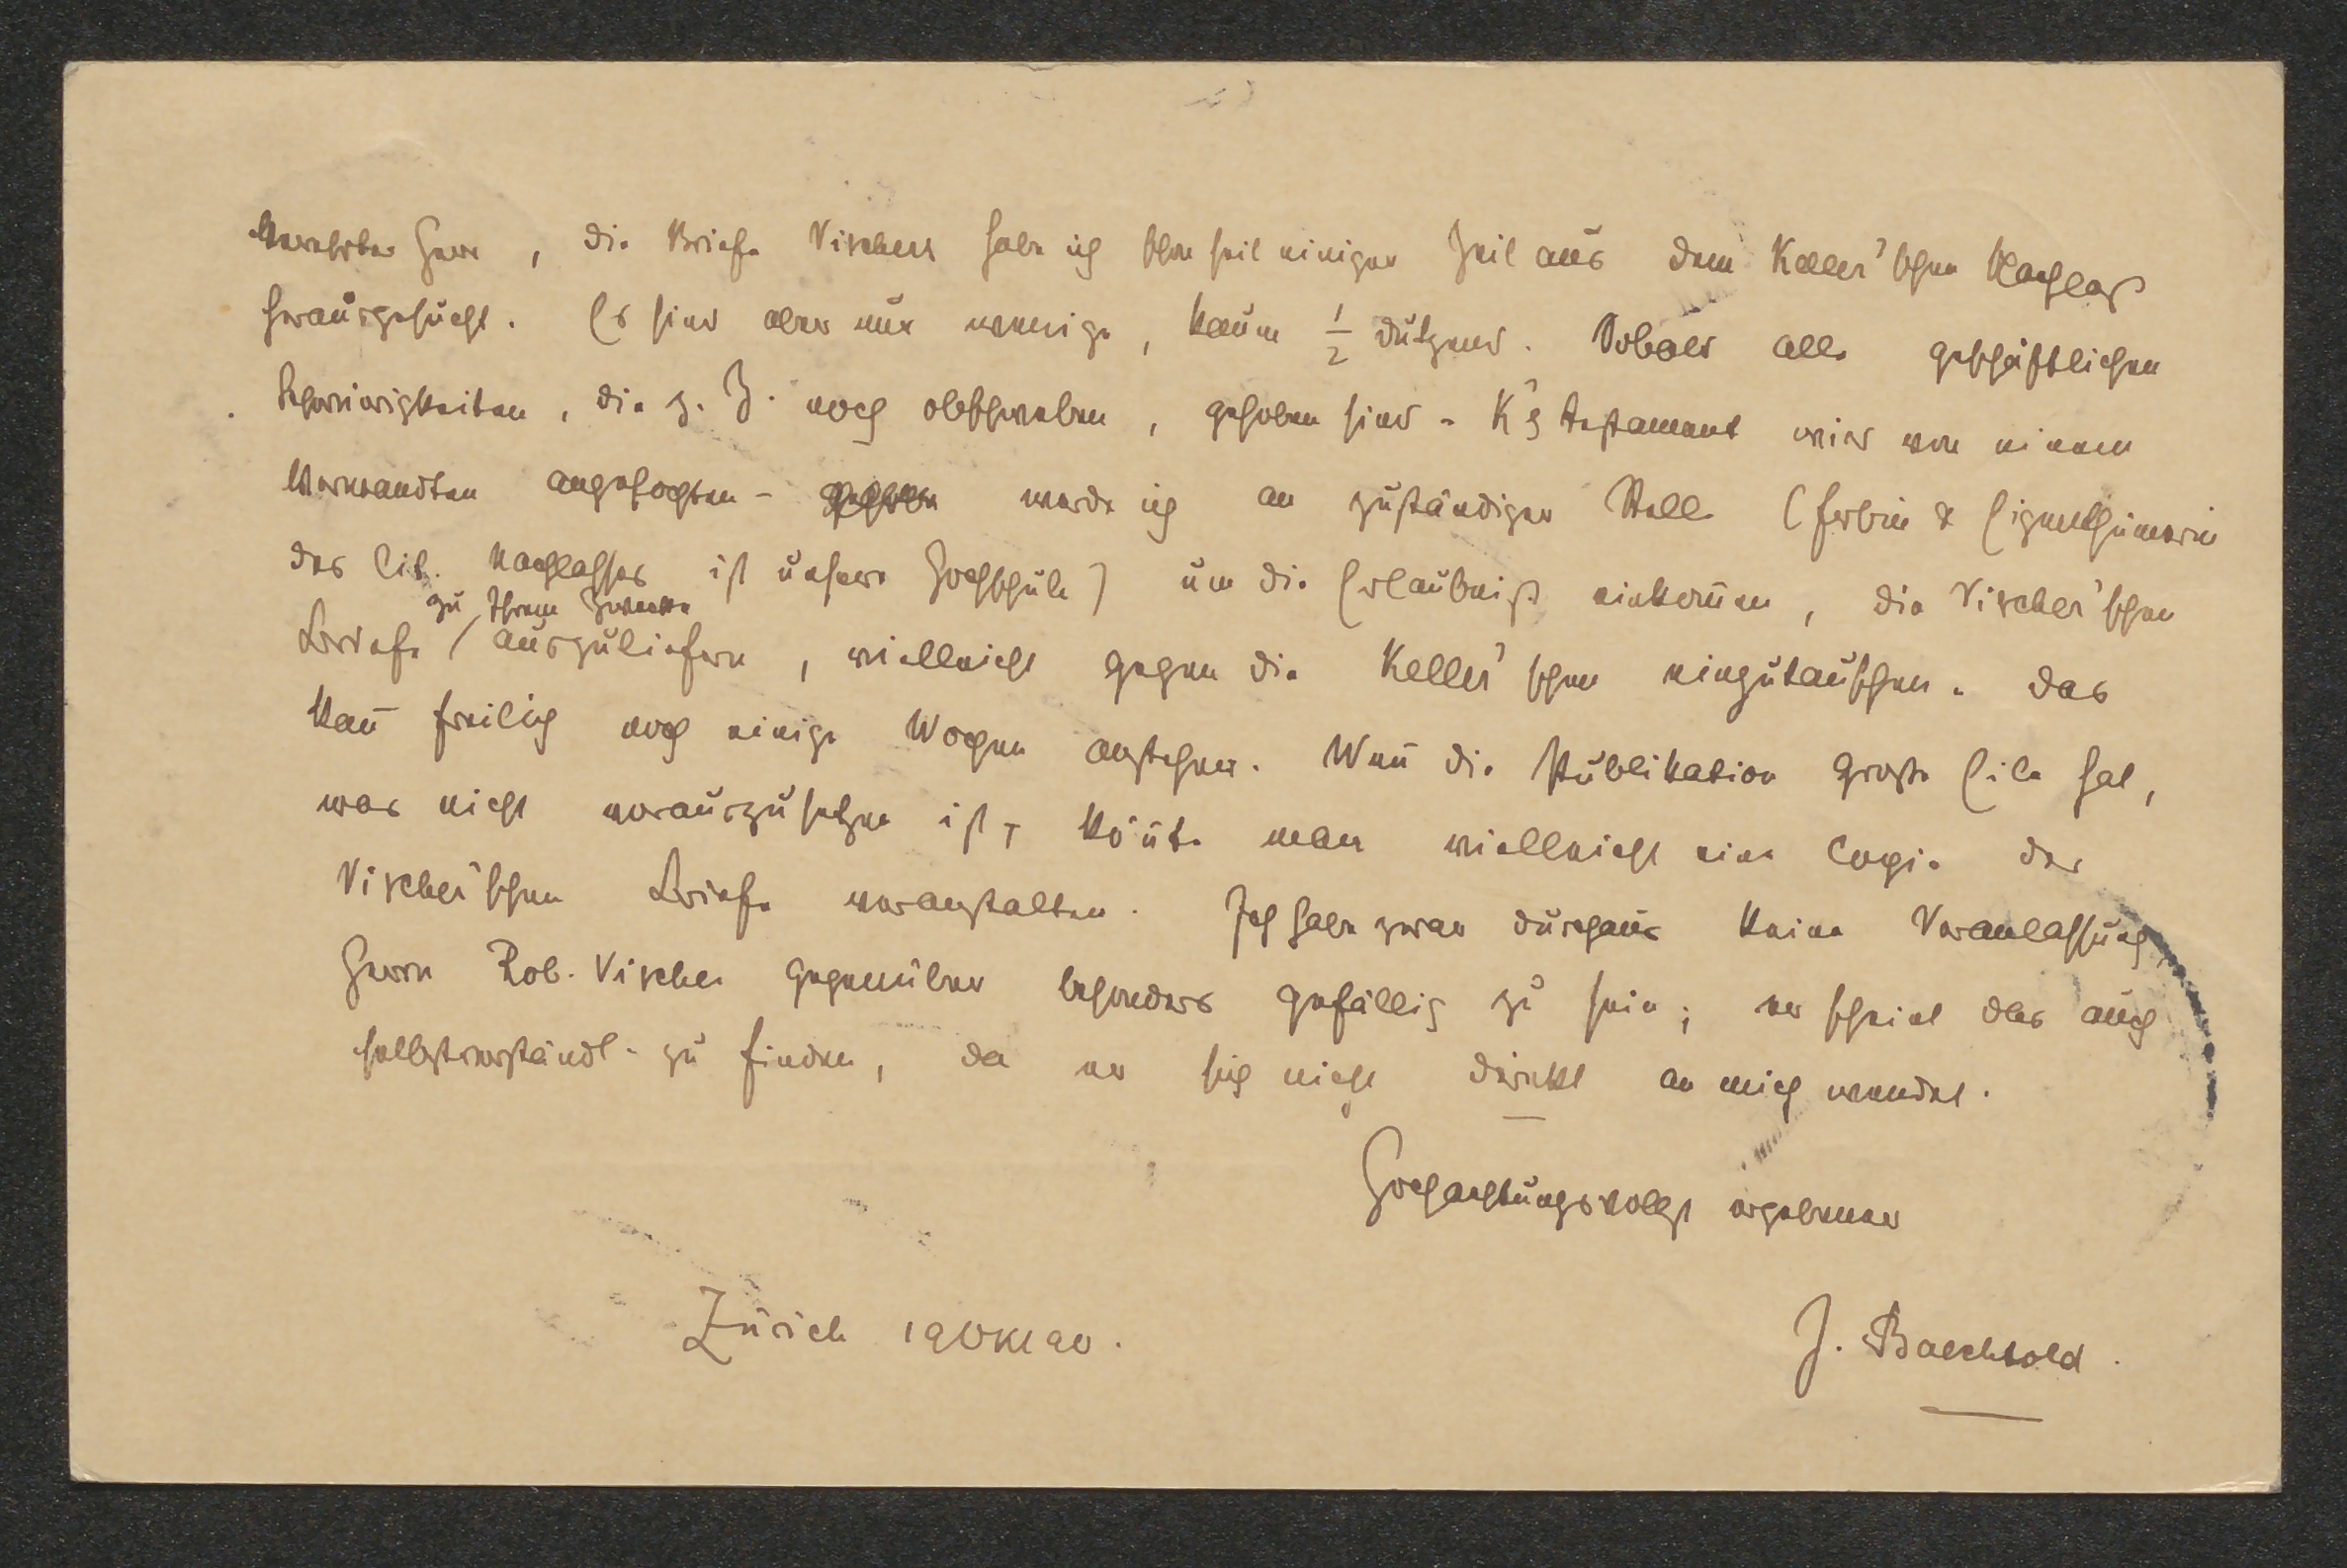 Verehrter Herr, die Briefe Vischers habe ich schon seit einiger Zeit aus dem Keller'schen Nachlaß
herausgesucht. Es sind aber nur wenige, kaum ½ Dutzend. Sobald alle geschäftlichen
Schwierigkeiten, die z. Z. noch obschweben, gehoben sind - K's Testament wird von einem
Verwandten angefochten - werde ich an zuständiger Stelle (Erbin & Eigenthümerin
des lit. Nachlasses ist unsere Hochschule) um die Erlaubniß einkom̄en, die Vischer'schen
zu Ihrem Zwecke
Briefe auszuliefern, vielleicht gegen die Keller'schen einzutauschen. Das
kan̄ freilich noch einige Wochen anstehen. Wen̄ die Publikation große Eile hat,
was nicht vorauszusetzen ist, kön̄te man vielleicht eine Copie der
Vischer'schen Briefe veranstalten. Ich habe zwar durchaus keine Veranlassung,
Herrn Rob. Vischer gegenüber besonders gefällig zu sein; er scheint das auch
selbstverständl. zu finden, da er sich nicht direkt an mich wendet.
Hochachtungsvollst ergebener
Zürich 19 X 90.
J. Baechtold.